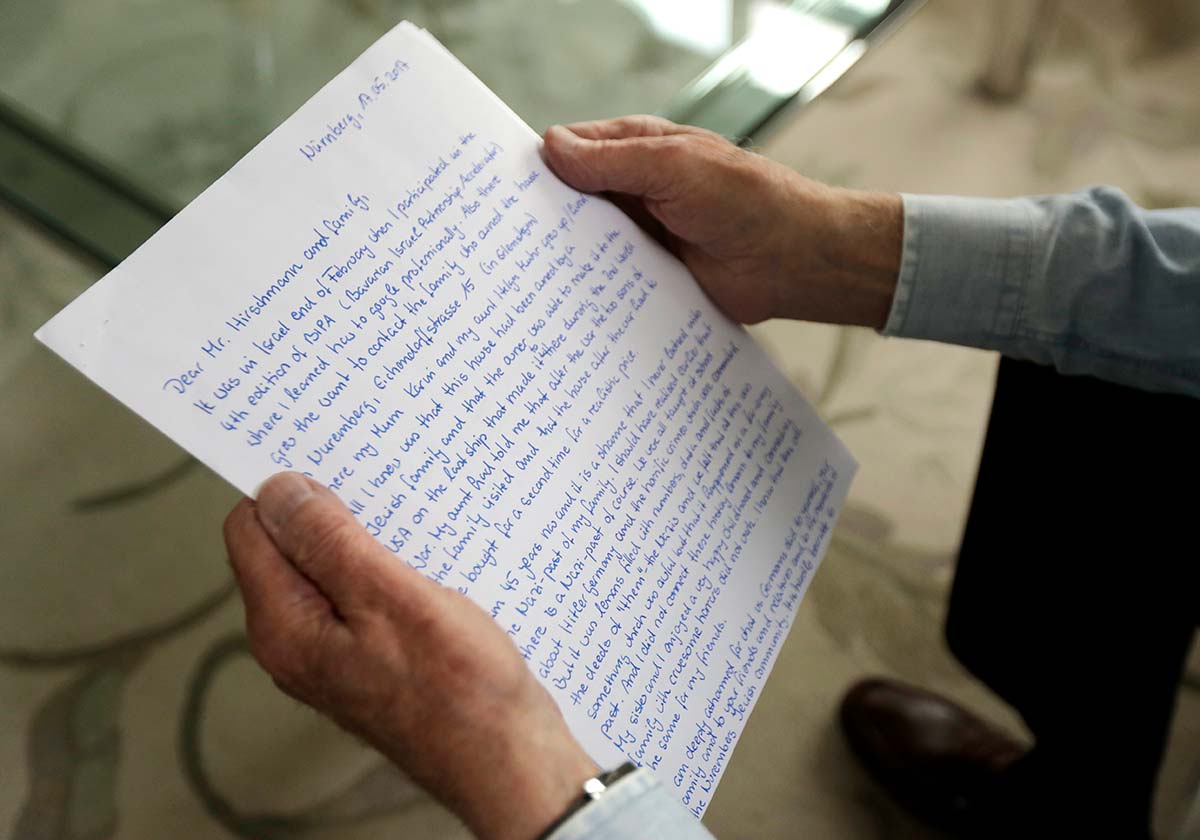 Nürnberg, 17.05.2017
Dear Mr. Hirschmann and family,
It was in Israel end of February when I participated in the
4th edition of BIPA (Bavarian Israel Partnership Accelerator)
where I learned how to google professionally. Also there
grew the want to contact the family who owned the house
Nuremberg, Eichendorffstrasse 15 (in Erlenstegen)
here my Mum Karin and my aunt Helga Kuhr grew up
All I knew was that this house had been owned by a
Jewish family and that the owner was able to make it to the
USA on the last ship that made it there during the 2nd World
War. My aunt had told me that after the war the two sons of
the family visited and that the house after the war had to
be bought for a second time for a realistic price
am 45 years now and it is a shame that I never bothered
the Nazi-past of my family. I should have realized earlier that
there is a Nazi-past of course. We were all taught at school
about Hitler Germany and the horrific crimes which were committed
But it was lessons filled with numbers, data and facts of
the deeds of "them" the Nazis and we felt that this was
something which was awful but that it happened in a far away
past. And I did not connect these horrifying times to my family
My sister and I enjoyed a very happy childhood and
family with gruesome horrors did not
he same for my friends.
am deeply ashamed for what us Germans did to
family and to your friends and relatives and to
the Nuremberg Jewish community. It is